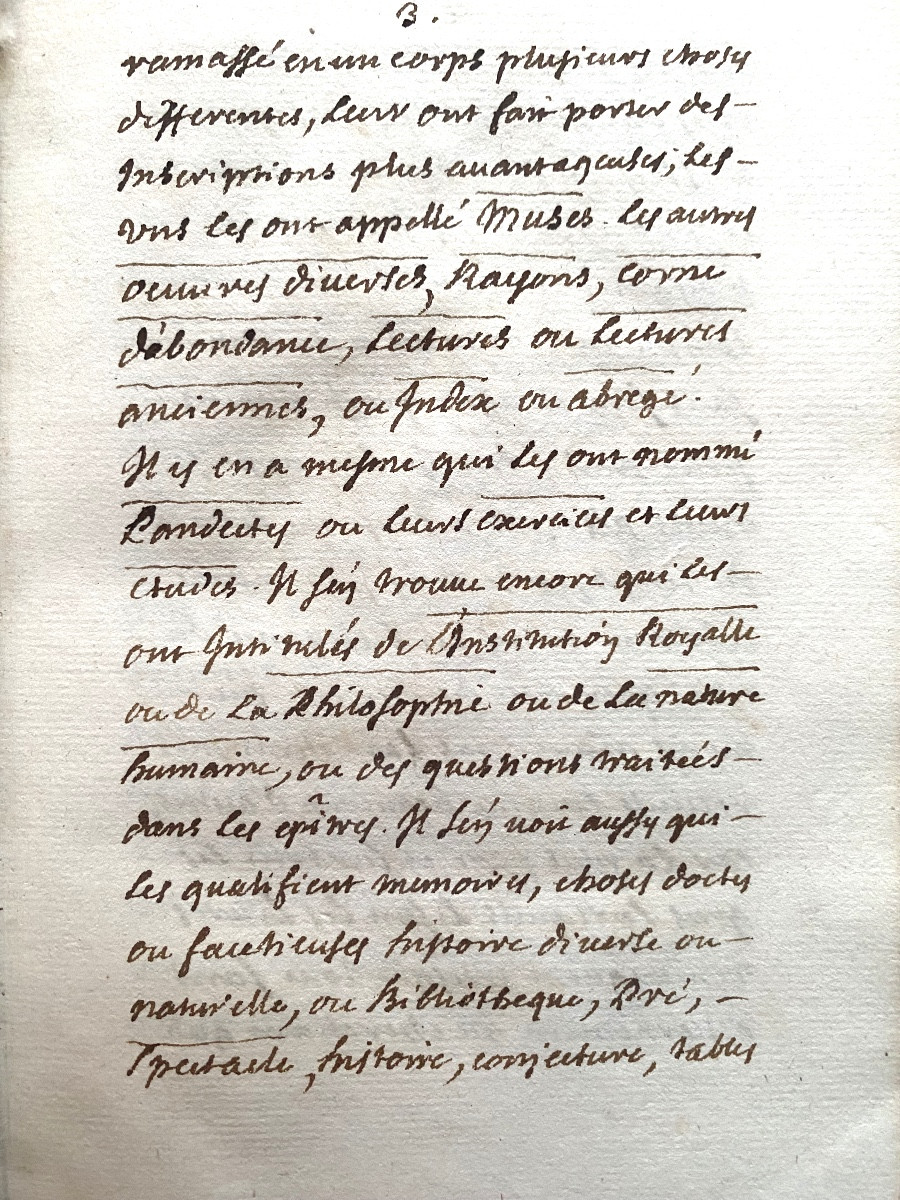 3.
ramassé en un corps plusieurs choses
differentes, leur ont fait porter des —
Inscriptions plus auantageuses; les —
vns les ont appellé Muses. les autres
oeuures diuerses, Rayons, corne
d'abondance, Lectures ou Lectures
anciennes, ou Index ou abregé.
Il y en a mesme qui les ont nommé
Pandectes ou leurs exercices et leurs
etudes. Il s'en trouue encore qui les —
ont Intitulés de l'Institution Royalle
ou de La Philosophie ou de La nature
humaine, ou des questions traiteés —
dans les epîtres. Il s'en voit aussy qui —
les qualifient memoires, choses doctes
ou facetieuses histoire diuerse ou —
naturelle, ou Bibliotheque, Pré, —
Spectacle, histoire, conjecture, tables